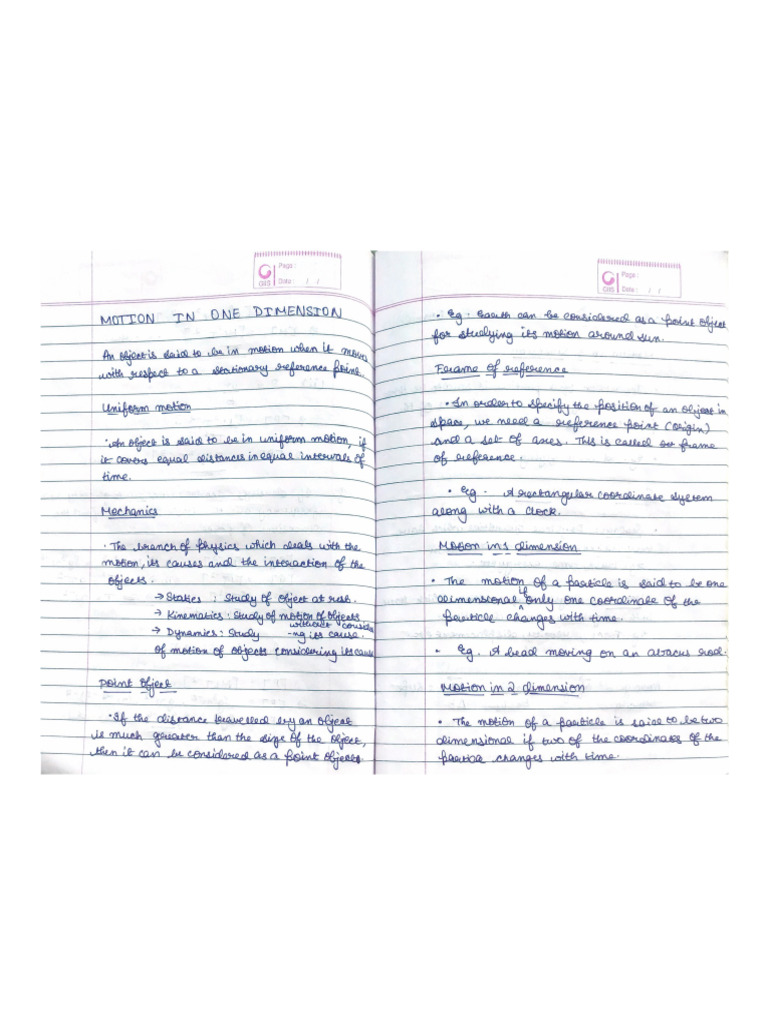 Page :
GIIS
Date : / /
MOTION IN ONE DIMENSION
An object is said to be in motion when it moves
with respect to a stationary reference point
Uniform motion
• An object is said to be in uniform motion, if
it covers equal distances in equal intervals of
time.
Mechanics
• The branch of physics which deals with the
motion, its causes and the interaction of the
objects.
→ Statics : Study of object at rest.
→ Kinematics : Study of motion of objects
without conside
→ Dynamics : Study -ng its cause.
of motion of objects considering its cause
Point Object
• If the distance travelled by an object
is much greater than the size of the object,
then it can be considered as a point objects
Page :
GIIS
Date : / /
• Eg. Earth can be considered as a point object
for studying its motion around sun.
Frame of reference
• In order to specify the position of an object in
space, we need a reference point (origin)
and a set of axes. This is called frame
of reference.
• Eg. A rectangular coordinate system
along with a clock.
Motion in 1 dimension
• The motion of a particle is said to be one
dimensional if only one coordinate of the
particle changes with time.
• Eg. A bead moving on an abacus rod.
Motion in 2 dimension
• The motion of a particle is said to be two
dimensional if two of the coordinates of the
particle changes with time.